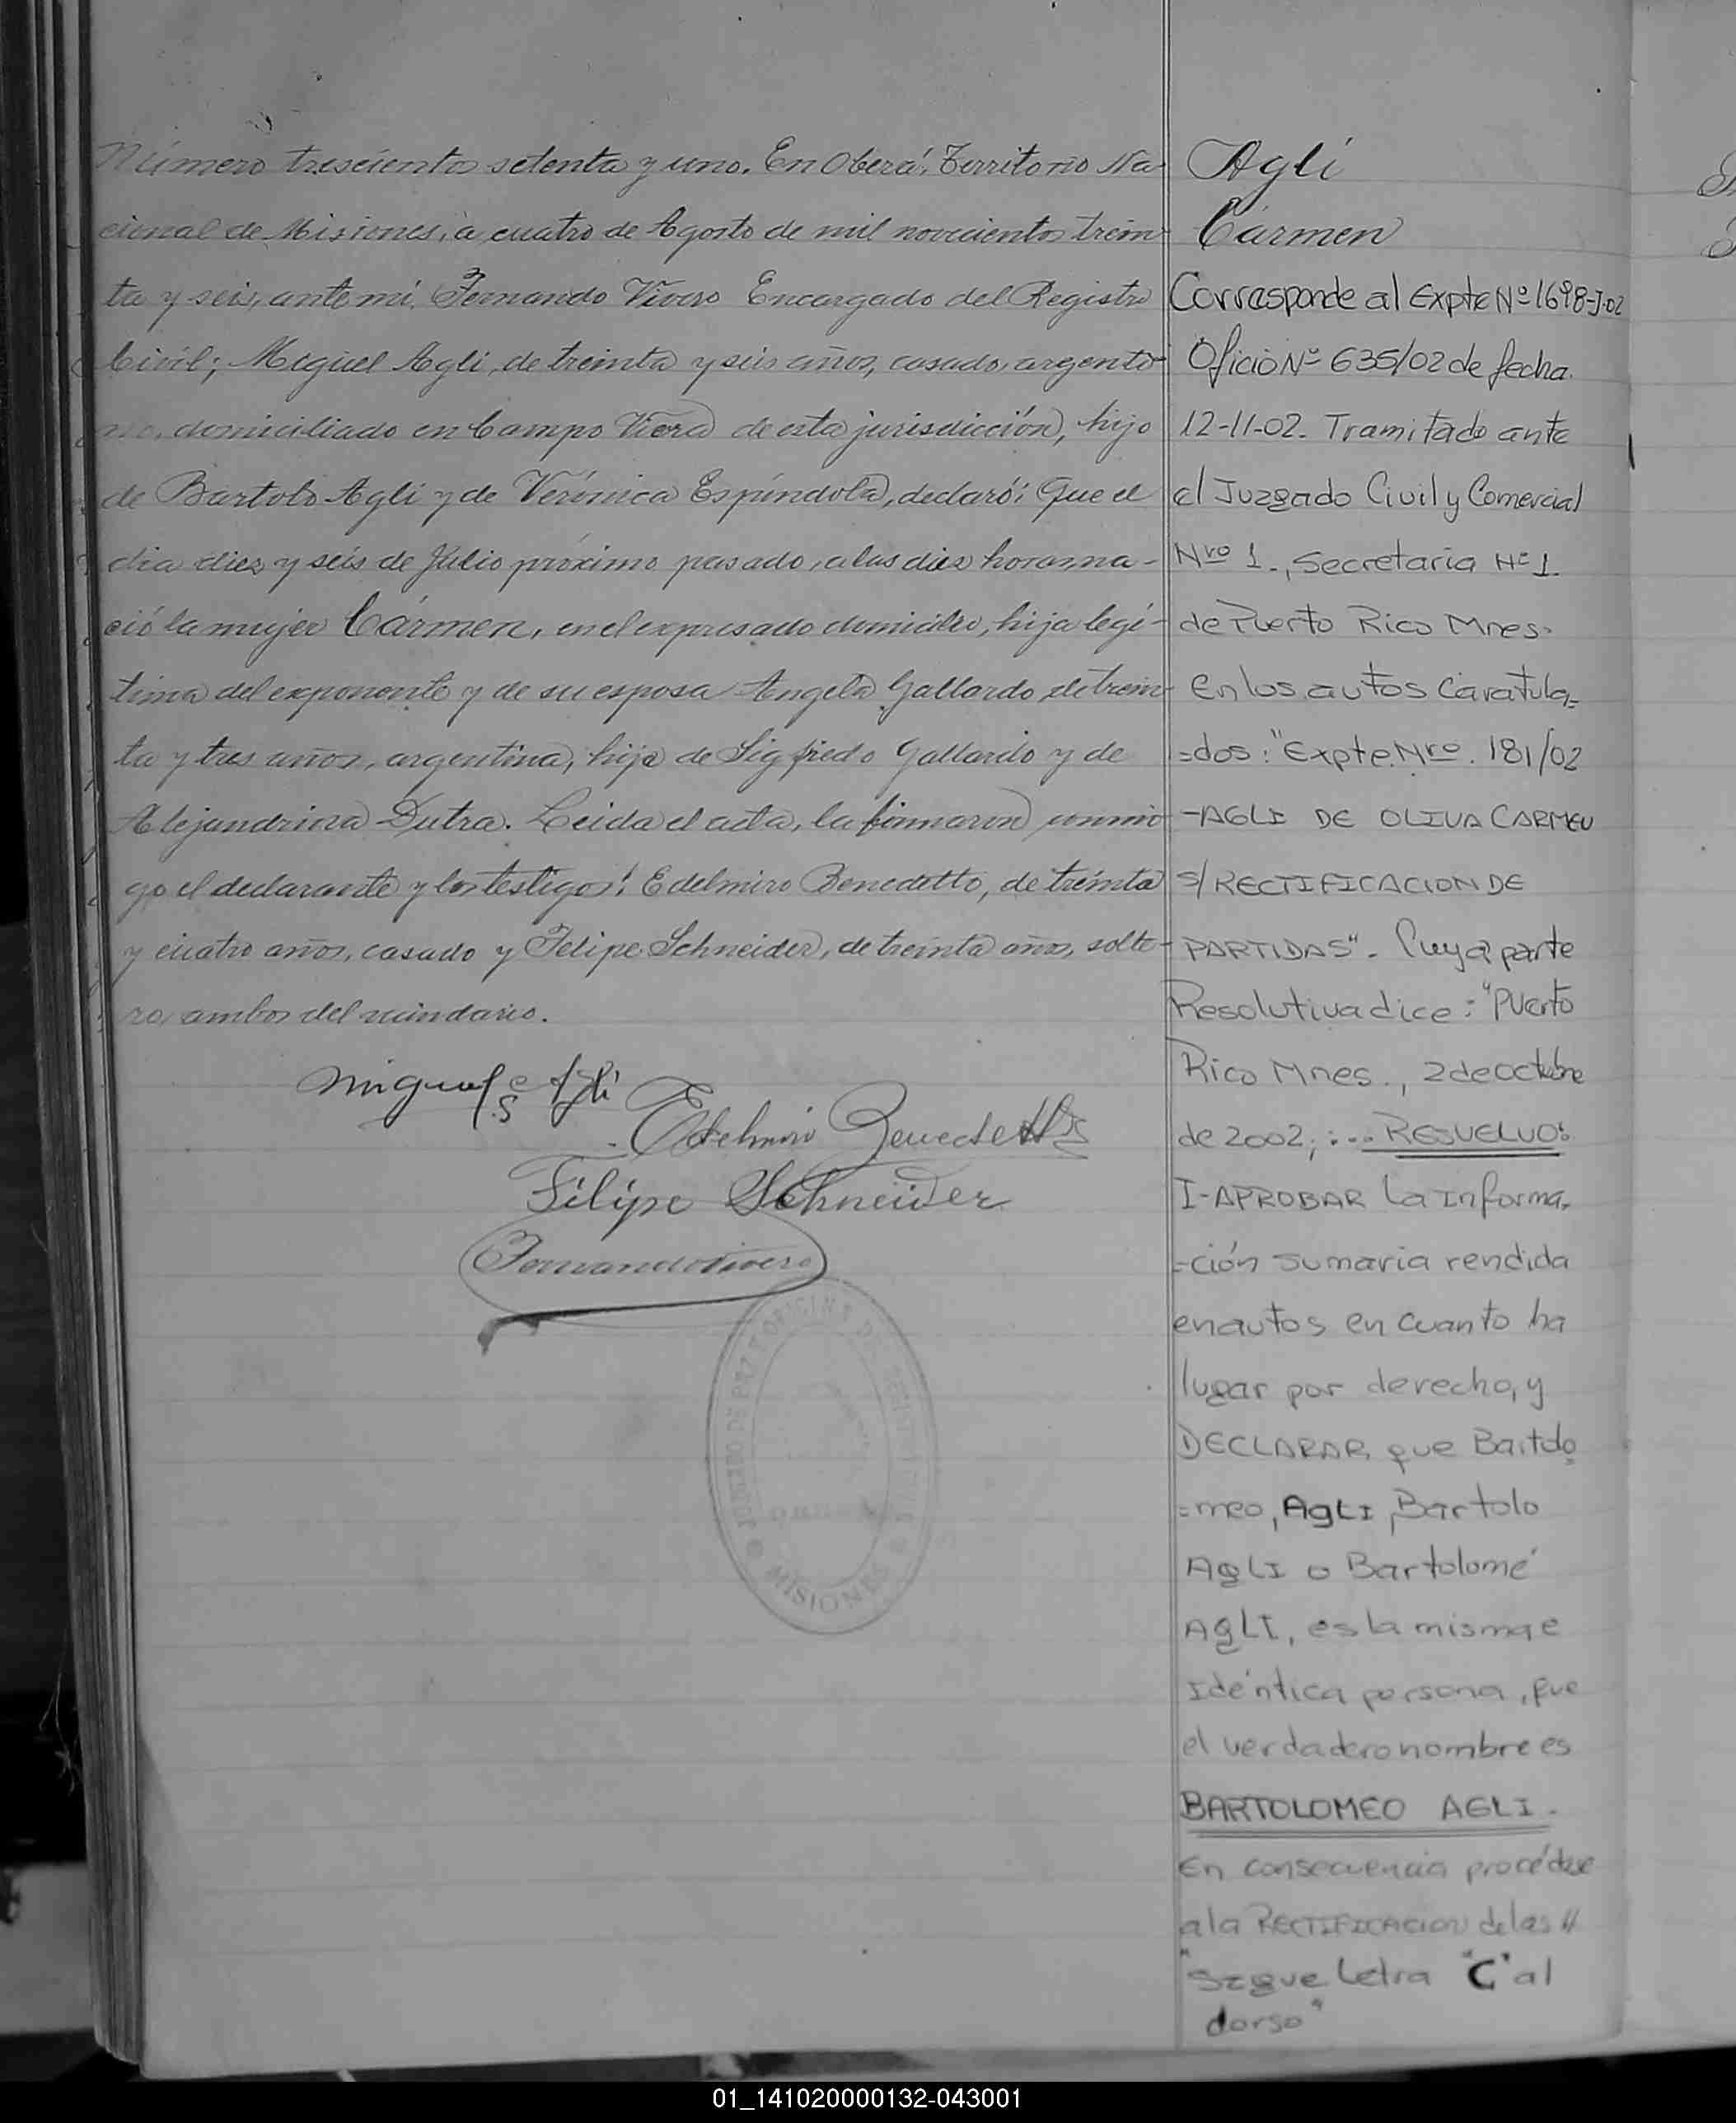 Número trescientos setenta y uno. En Oberá, Territorio Na-
cional de Misiones, a cuatro de Agosto de mil novecientos trein-
ta y seis, ante mí, Fernando Vivero Encargado del Registro
Civil; Miguel Agli, de treinta y seis años, casado, argenti-
no, domiciliado en Campo Viera de esta jurisdicción, hijo
de Bartolo Agli y de Verónica Espíndola, declaró: Que el
dia diez y seis de Julio próximo pasado, a las diez horas, na-
ció la mujer Cármen, en el expresado domicilio, hija legí-
tima del exponente y de su esposa Angela Gallardo, de trein-
ta y tres años, argentina, hija de Sigfredo Gallardo y de
Alejandrina Dutra. Leida el acta, la firmaron conmi-
go el declarante y los testigos: Edelmiro Benedetto, de treinta
y cuatro años, casado y Felipe Schneider, de treinta años, solte-
ro, ambos del vecindario.
Miguel S Agli
Edelmiro Benedetto
Felipe Schneider
Fernando Vivero
JUZGADO DE PAZ
MISIONES
Agli
Cármen
Corresponde al Expte Nº 1698-J-02
Oficio Nº 635/02 de fecha
12-11-02. Tramitado ante
el Juzgado Civil y Comercial
Nro 1., Secretaria Nº 1
de Puerto Rico Mnes.
en los autos Caratula=
=dos: "Expte. Nro. 181/02
-AGLI DE OLIVA CARMEN
S/ RECTIFICACION DE
PARTIDAS". Cuya parte
Resolutiva dice: "Puerto
Rico Mnes., 2 de octubre
de 2002,:... RESUELVO:
I-APROBAR la informa-
-ción sumaria rendida
en autos en cuanto ha
lugar por derecho, y
DECLARAR que Bartolo
=meo, AgLI, Bartolo
AgLI o Bartolomé
AgLI, es la misma e
idéntica persona, que
el verdadero nombre es
BARTOLOMEO AGLI.
En consecuencia procédase
a la RECTIFICACION de las //
"Sigue Letra "C" al
dorso"
01_141020000132-043001